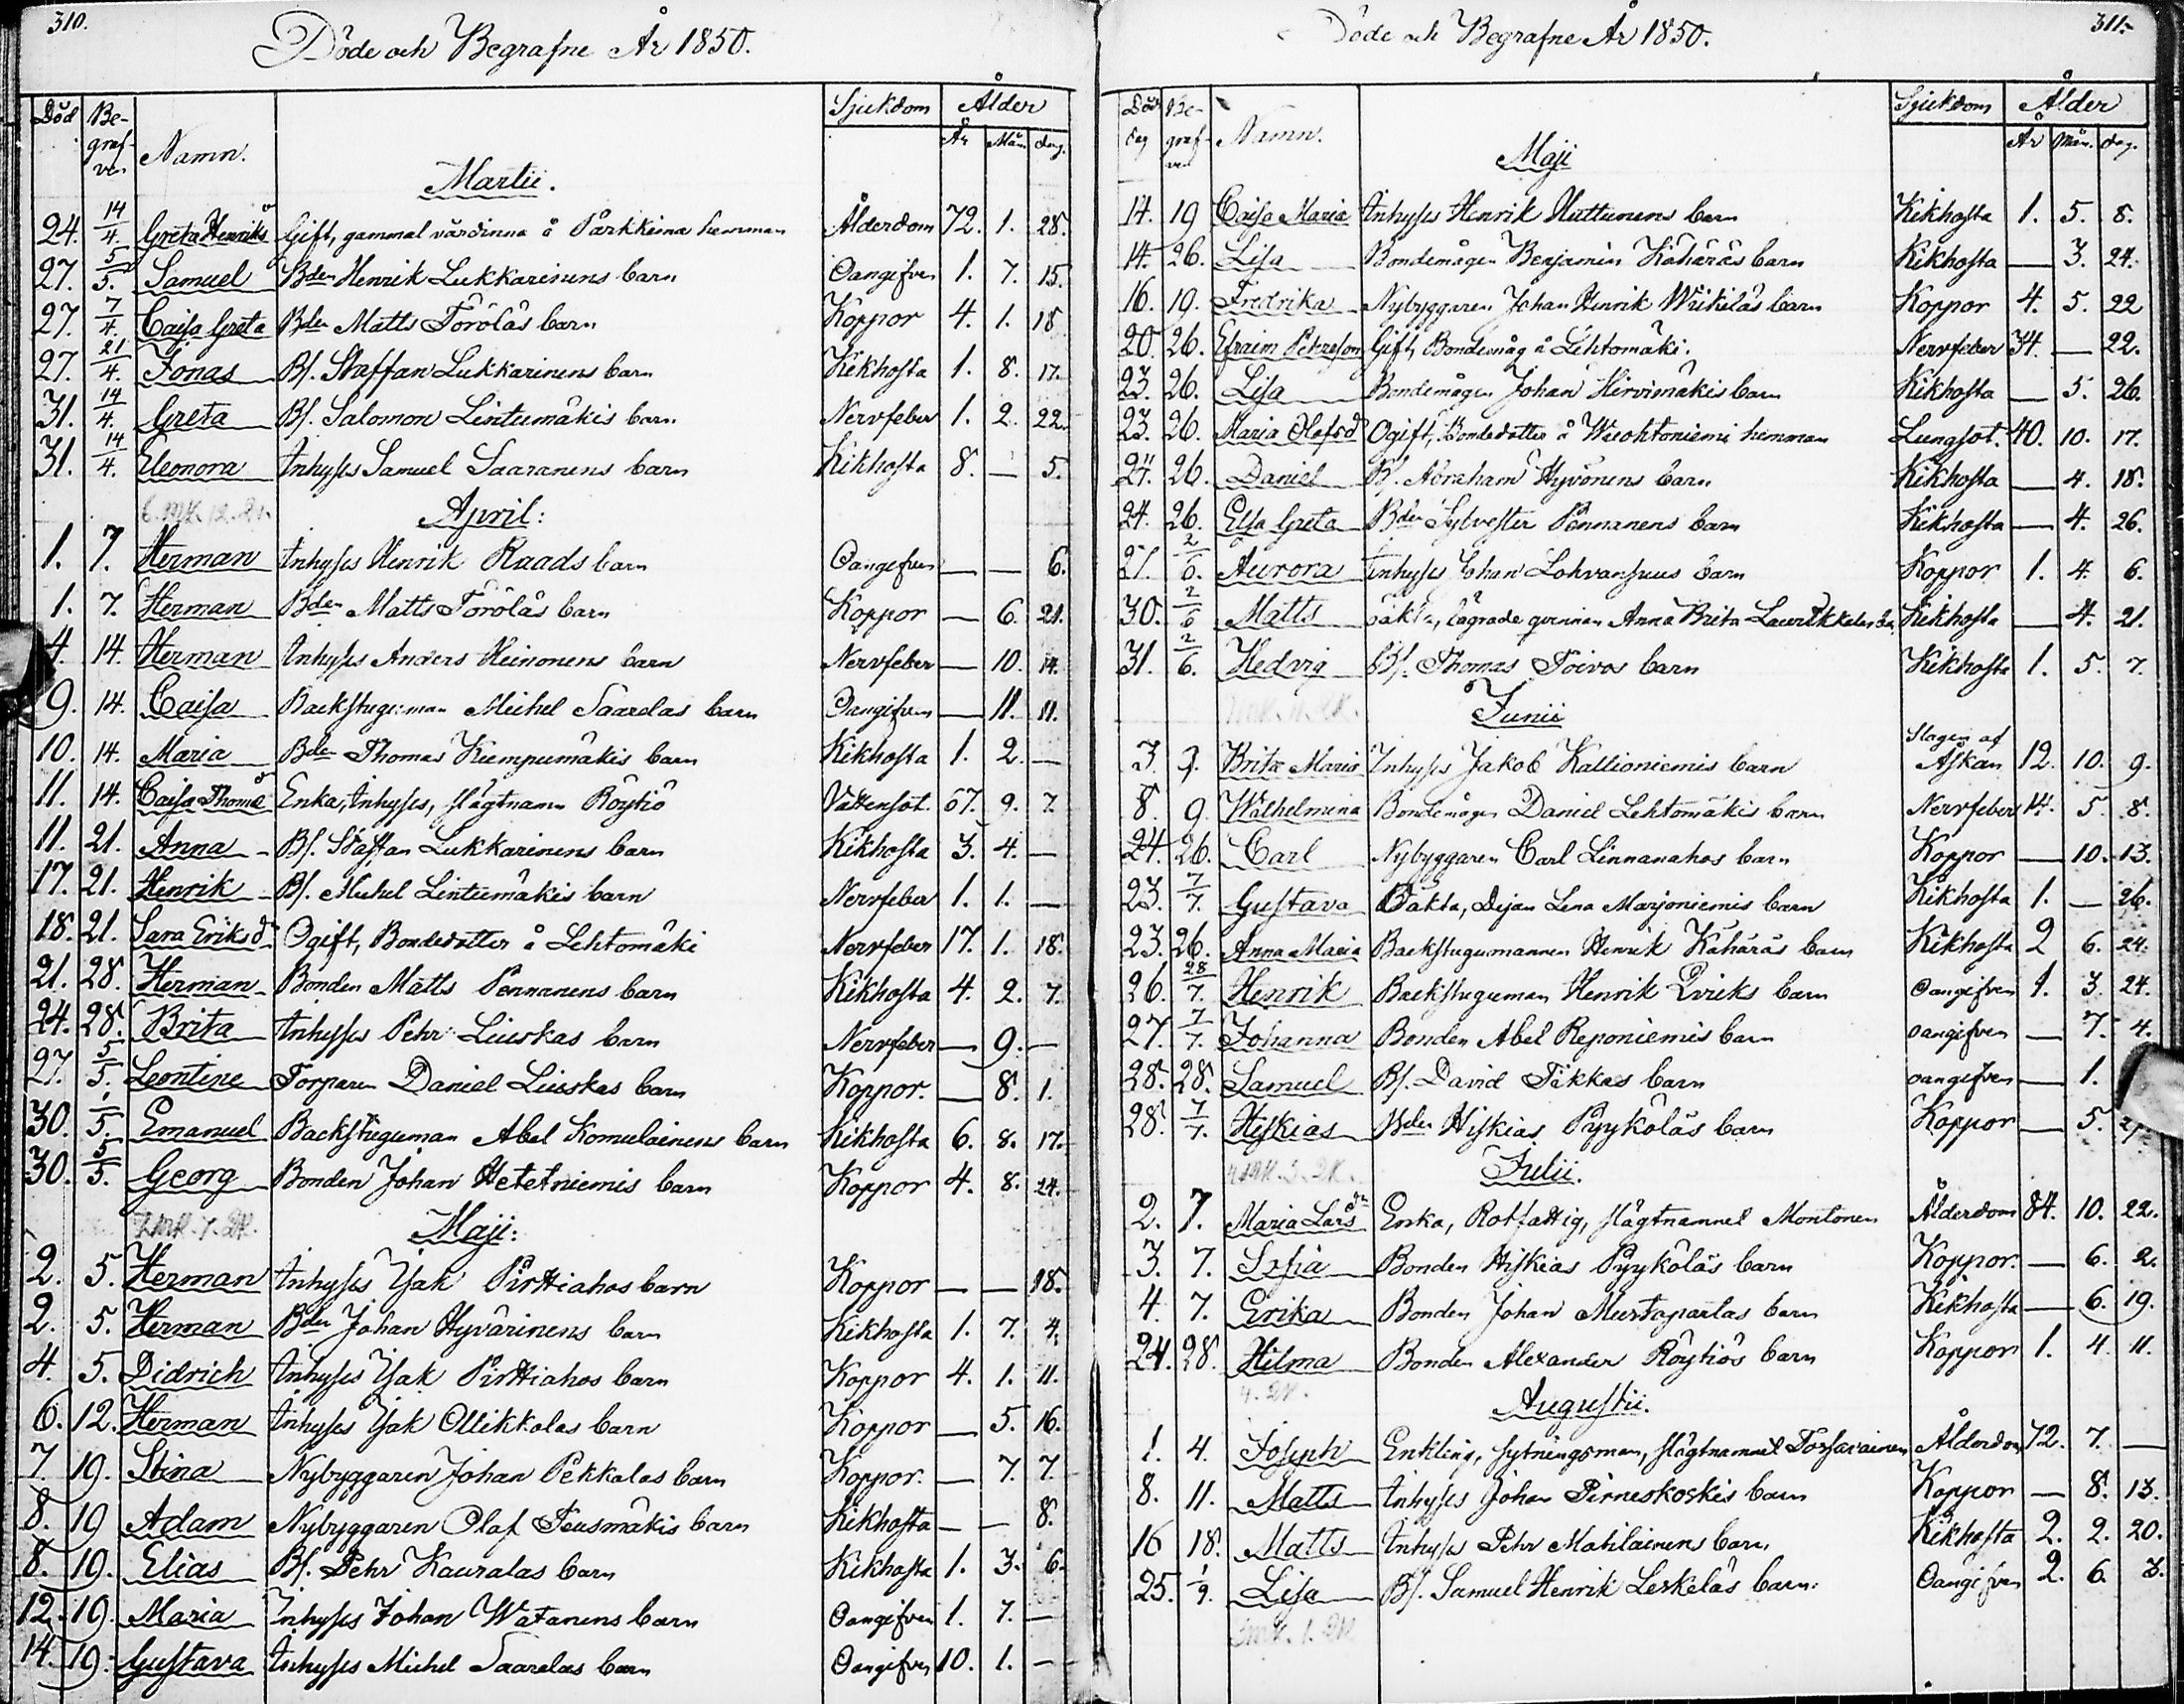 310.
Döde och Begrafne År 1850.
Död Be-graf-ven Namn. Sjukdom Ålder År Mån dag.
Martii.
24. 14/4. Greta Henriks Gift, gammal värdinna å Pärkkimä hemman Ålderdom 72. 1. 28.
27. 5/5. Samuel Bden Henrik Lukkarinens barn Oangifven 1. 7. 15.
27. 7/4. Caisa Greta Bden Matts Törölås barn Koppor 4. 1. 18
27. 21/4. Jonas Bs. Staffan Lukkarinens barn Kikhosta 1. 8. 17.
31. 14/4. Greta Bs. Salomon Lintumäkis barn Nervfeber 1. 2. 22.
31. 14/4. Eleonora Inhyses Samuel Saaranens barn Kikhosta 8. — 5.
April:
1. 7. Herman Inhyses Henrik Raads barn Oangifven — — 6.
1. 7. Herman Bden Matts Törölås barn Koppor — 6. 21.
4. 14. Herman Inhyses Anders Heinonens barn Nervfeber — 10. 14.
9. 14. Caisa Backstuguman Michel Saarelas barn Oangifven — 11. 11.
10. 14. Maria Bden Thomas Kumpumäkis barn Kikhosta 1. 2. —
11. 14. Caisa Thomæ Enka, Inhyses, slägtnamn Röytiö Vattensot. 67. 9. 7.
11. 21. Anna Bs. Staffan Lukkarinens barn Kikhosta 3. 4. —
17. 21. Henrik Bs. Michel Lintumäkis barn Nervfeber 1. 1. —
18. 21. Sara Eriksd Ogift, Bondedotter å Lehtomäki Nervfeber 17. 1. 18.
21. 28. Herman Bonden Matts Pennanens barn Kikhosta 4. 2. 7.
24. 28. Brita Inhyses Pehr Liuskas barn Nervfeber — 9. —
27. 5/5. Leontine Torparen Daniel Liuskas barn Koppor. — 8. 1.
30. 1/5. Emanuel Backstuguman Abel Komulainens barn Kikhosta 6. 8. 17.
30. 5/5. Georg Bonden Johan Heteniemis barn Koppor 4. 8. 24.
Maji:
2. 5. Herman Inhyses Isak Pirttiahos barn Koppor — — 18.
2. 5. Herman Bden Johan Hyvärinens barn Kikhosta 1. 7. 4.
4. 5. Didrich Inhyses Isak Pirttiahos barn Koppor 4. 1. 11.
6. 12. Herman Inhyses Isak Ollikkalas barn Koppor — 5. 16.
7 19. Stina Nybyggaren Johan Pekkalas barn Koppor. — 7. 7.
8. 19 Adam Nybyggaren Olaf Teusmäkis barn Kikhosta — — 8.
8. 19. Elias Bs. Pehr Kauralas barn Kikhosta 1. 3. 6.
12. 19. Maria Inhyses Johan Watanens barn Oangifven 1. 7. —
14. 19. Gustava Inhyses Michel Saarelas barn Oangifven 10. 1. —
311.
Döde och Begrafne År 1850.
Död dag Be-graf-ven Namn. Sjukdom Ålder År Mån. dag.
Maji
14. 19 Caisa Maria Inhyses Henrik Huttunens barn Kikhosta 1. 5. 8.
14. 26. Lisa Bondemågen Benjamin Kähäräs barn Kikhosta — 3. 24.
16. 19. Fredrika Nybyggaren Johan Henrik Wiikiläs barn Koppor 4. 5. 22
20. 26. Efraim Pehrsson Gift, Bondemåg å Lehtomäki. Nervfeber 34. — 22.
23. 26. Lisa Bondemågen Johan Hirvimäkis barn Kikhosta — 5. 26.
23. 26. Maria Olofsd Ogift, Bondedotter å Wuohtoniemi hemman Lungsot. 40. 10. 17.
24. 26. Daniel Bs. Abraham Hyvönens barn Kikhosta — 4. 18.
24. 26. Elsa Greta Bden Sylvester Pennanens barn Kikhosta — 4. 26.
27. 2/6. Aurora Inhyses Johan Lohvansuus barn Koppor 1. 4. 6.
30. 2/6 Matts oäkta, lägrade qvinnan Anna Brita Kikhosta — 4. 21.
31. 2/6. Hedvig Bs. Thomas Toivos barn Kikhosta 1. 5. 7.
Junii
3. 9. Brita Maria Inhyses Jakob Kallioniemis barn Slagen af Åskan 12. 10. 9.
8. 9. Wilhelmina Bondemågen Daniel Lehtomäkis barn Nervfeber 14. 5. 8.
24. 26. Carl Nybyggaren Carl Linnanahos barn Koppor — 10. 13.
23. 7/7. Gustava Oäkta, Dejan Lena Marjoniemis barn Kikhosta 1. — 26.
23. 26. Anna Maria Backstugumannen Henrik Kähäräs barn Kikhosta 2 6. 24.
26. 28/7. Henrik Backstuguman Henrik Qviks barn Oangifven 1. 3. 24.
27. 7/7. Johanna Bonden Abel Reponiemis barn oangifven — 7. 4.
28. 28. Samuel Bs. David Täkkäs barn oangifven — 1.
28. 7/7. Hiskias Bden Hiskias Pyyköläs barn Koppor — 5. 27
Julii.
2. 7. Maria Larsdr Enka, Rotfattig, slägtnamnet Montonen Ålderdom 84. 10. 22.
3. 7. Sofia Bonden Hiskias Pyyköläs barn Koppor. — 6. 2.
4. 7. Erika Bonden Johan Murtaparlas barn Kikhosta — 6. 19.
24. 28. Hilma Bonden Alexander Röytiös barn Koppor 1. 4. 11.
Augustii.
1. 4. Joseph Enkling, sytningsman, slägtnamnet Ålderdom 72. 7. —
8. 11. Matts Inhyses Johan Pirneskoskis barn Koppor — 8. 13.
16 18. Matts Inhyses Pehr Matilainens barn Kikhosta 2. 2. 20.
25. 1/9. Lisa Bs. Samuel Henrik Leskeläs barn. Oangifven 2. 6. 3.